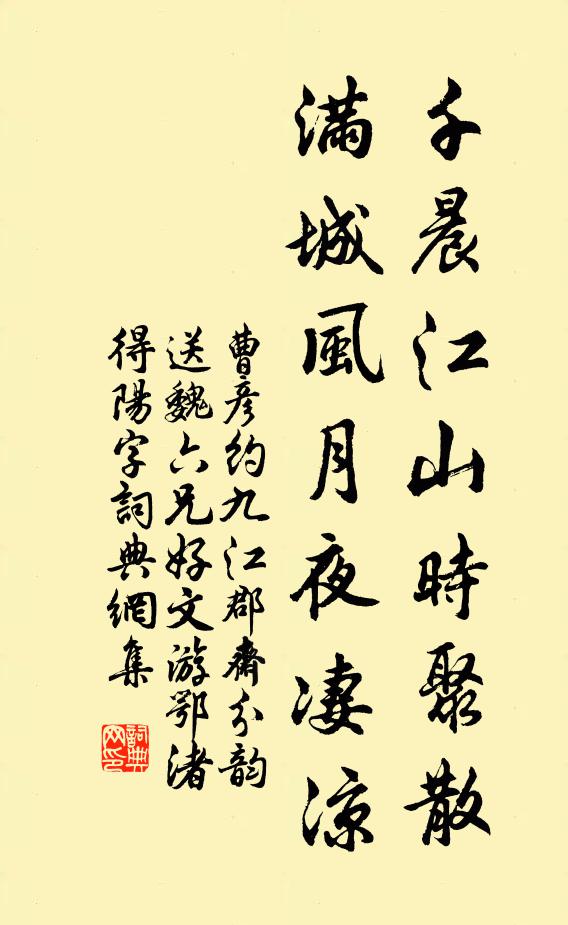 千晨江山時聚散
滿城風月夜凄涼
曹彥約九江郡齋分韵
送魏六兄好文游鄂渚
得陽字詞典網集
詞典
网印